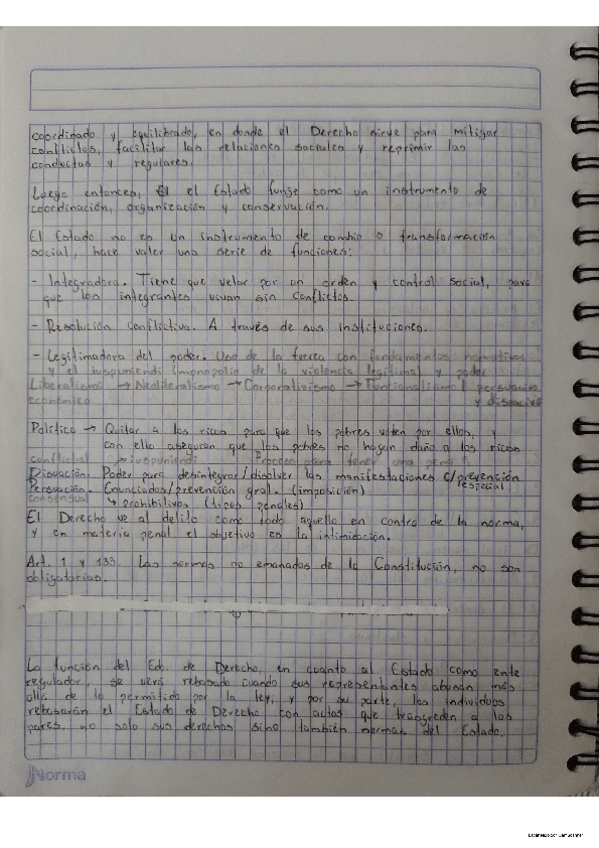 coordinado y equilibrado, en donde el Derecho sirve para mitigar
conflictos, facilitar las relaciones sociales y reprimir las
conductas y regulares.
Luego entonces, el Estado funge como un instrumento de
coordinación, organización y conservación.
El Estado no es un instrumento de cambio o transformación
social, hace valer una serie de funciones:
- Integradora. Tiene que velar por un orden y control social, para
que los integrantes vivan sin conflictos.
- Resolución conflictiva. A través de sus instituciones.
- Legitimadora del poder. Uso de la fuerza con fundamentos normativos
y el iuspuniendi (monopolio de la violencia legítima) y poder
Liberalismo → Neoliberalismo → Corporativismo → Funcionalismo persuasivo
económico y disuasivo
Política → Quitar a los ricos para que los pobres voten por ellos, y
con ello aseguran que los pobres no hagan daño a los ricos
conflictual → iuspuniendi Proceso para tener una pena
Disuación. Poder para desintegrar/disolver las manifestaciones c/prevención
especial
Persuación. Enunciados/prevención gral. (imposición)
consensual ↳ prohibitivos (tipos penales)
El Derecho ve al delito como todo aquello en contra de la norma,
y en materia penal el objetivo es la intimidación.
Art. 1 y 133. Las normas no emanadas de la Constitución, no son
obligatorias.
La función del Edo. de Derecho, en cuanto al Estado como ente
regulador, se verá rebasado cuando sus representantes abusan más
allá de lo permitido por la ley, y por su parte, los individuos
rebasarán el Estado de Derecho con actos que transgreden a los
pares, no solo sus derechos sino también normas del Estado.
Norma